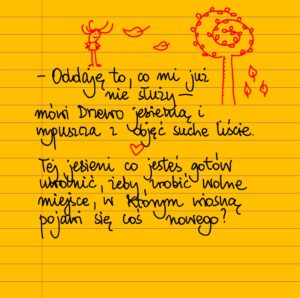 - Oddaję to, co mi już
nie służy -
mówi Drzewo jesienią i
wypuszcza z objęć suche liście.
Tej jesieni co jesteś gotów
uwolnić, żeby zrobić wolne
miejsce, w którym wiosną
pojawi się coś nowego?